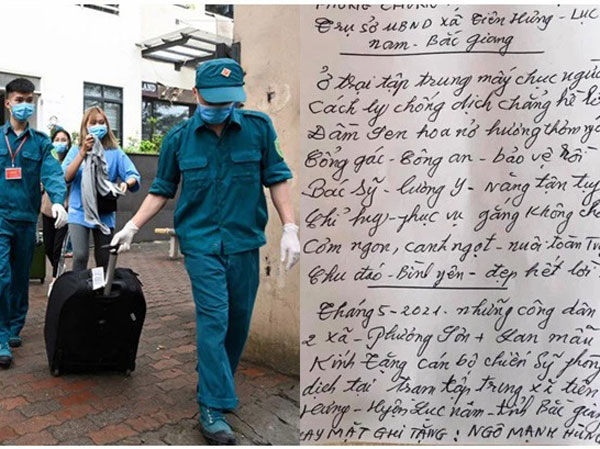 LAND
Trụ sở UBND xã Tiên Hưng - Lục
nam - Bắc Giang
Ở trại tập trung mấy chục ngư
Cách ly chống dịch chẳng hề
Đầm sen hoa nở hương thơm
Cổng gác - Công an - bảo vệ
Bác Sỹ - lương Y - Nặng tận tụy
Chỉ huy - phục vụ gắng không
Cơm ngon, canh ngọt - nuôi toàn
Chu đáo - Bình yên - đẹp hết lời
Tháng 5 - 2021. những công dân
2 xã - Phương Sơn + Lan mẫu
Kính Tặng cán bộ chiến Sỹ phòng
dịch tại Trạm tập trung xã tiên
Hưng - Huyện Lục nam - tỉnh Bắc gia
AY MẶT GHI TẶNG : NGÔ MẠNH HÙNG